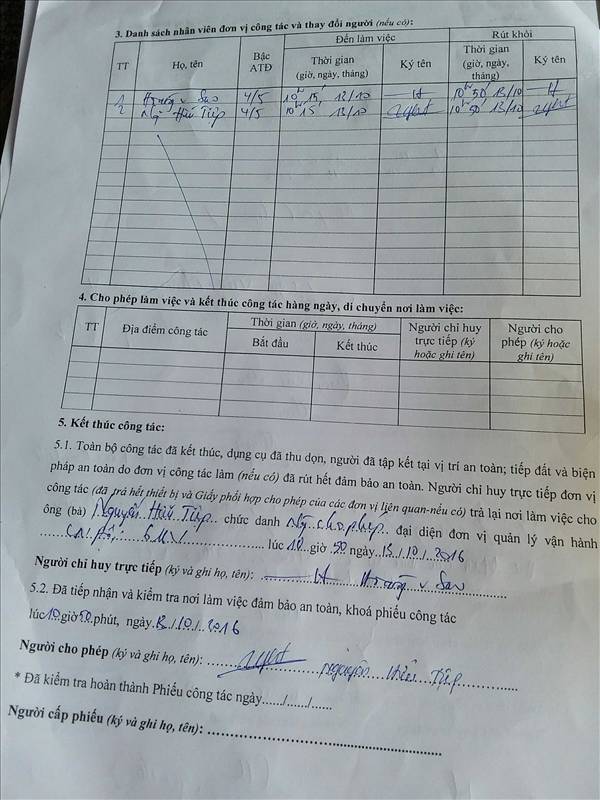 3. Danh sách nhân viên đơn vị công tác và thay đổi người (nếu có):
TT Họ, tên Bậc ATĐ Đến làm việc Rút khỏi
Thời gian (giờ, ngày, tháng) Ký tên Thời gian (giờ, ngày, tháng) Ký tên
1 Hoàng v Sao 4/5 10h 15' 13/10 10h 50' 13/10
2 Ng Hữu Tiệp 4/5 10h 15' 13/10 10h 50' 13/10
4. Cho phép làm việc và kết thúc công tác hàng ngày, di chuyển nơi làm việc:
TT Địa điểm công tác Thời gian (giờ, ngày, tháng) Người chỉ huy trực tiếp (ký hoặc ghi tên) Người cho phép (ký hoặc ghi tên)
Bắt đầu Kết thúc
5. Kết thúc công tác:
5.1. Toàn bộ công tác đã kết thúc, dụng cụ đã thu dọn, người đã tập kết tại vị trí an toàn; tiếp đất và biện
pháp an toàn do đơn vị công tác làm (nếu có) đã rút hết đảm bảo an toàn. Người chỉ huy trực tiếp đơn vị
công tác (đã trả hết thiết bị và Giấy phối hợp cho phép của các đơn vị liên quan-nếu có) trả lại nơi làm việc cho
ông (bà) Nguyễn Hữu Tiệp chức danh Ng. cho phép đại diện đơn vị quản lý vận hành
lúc 10 giờ 50 ngày 13/10/2016
Người chỉ huy trực tiếp (ký và ghi họ, tên): Hoàng v Sao
5.2. Đã tiếp nhận và kiểm tra nơi làm việc đảm bảo an toàn, khoá phiếu công tác
lúc 10 giờ 50 phút, ngày 13/10/2016
Người cho phép (ký và ghi họ, tên): Nguyễn Hữu Tiệp
* Đã kiểm tra hoàn thành Phiếu công tác ngày....../....../......
Người cấp phiếu (ký và ghi họ, tên):